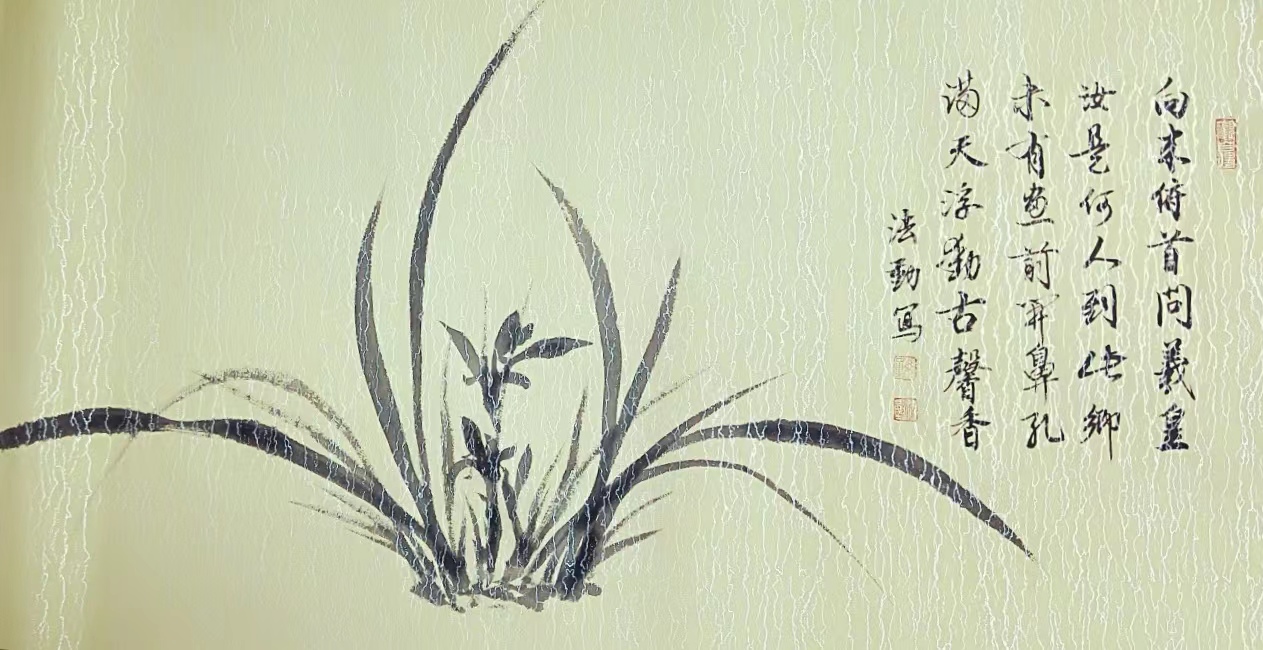 向來俯首問羲皇
汝是何人到此鄉
未有畫前開鼻孔
滿天浮動古馨香
法 寫